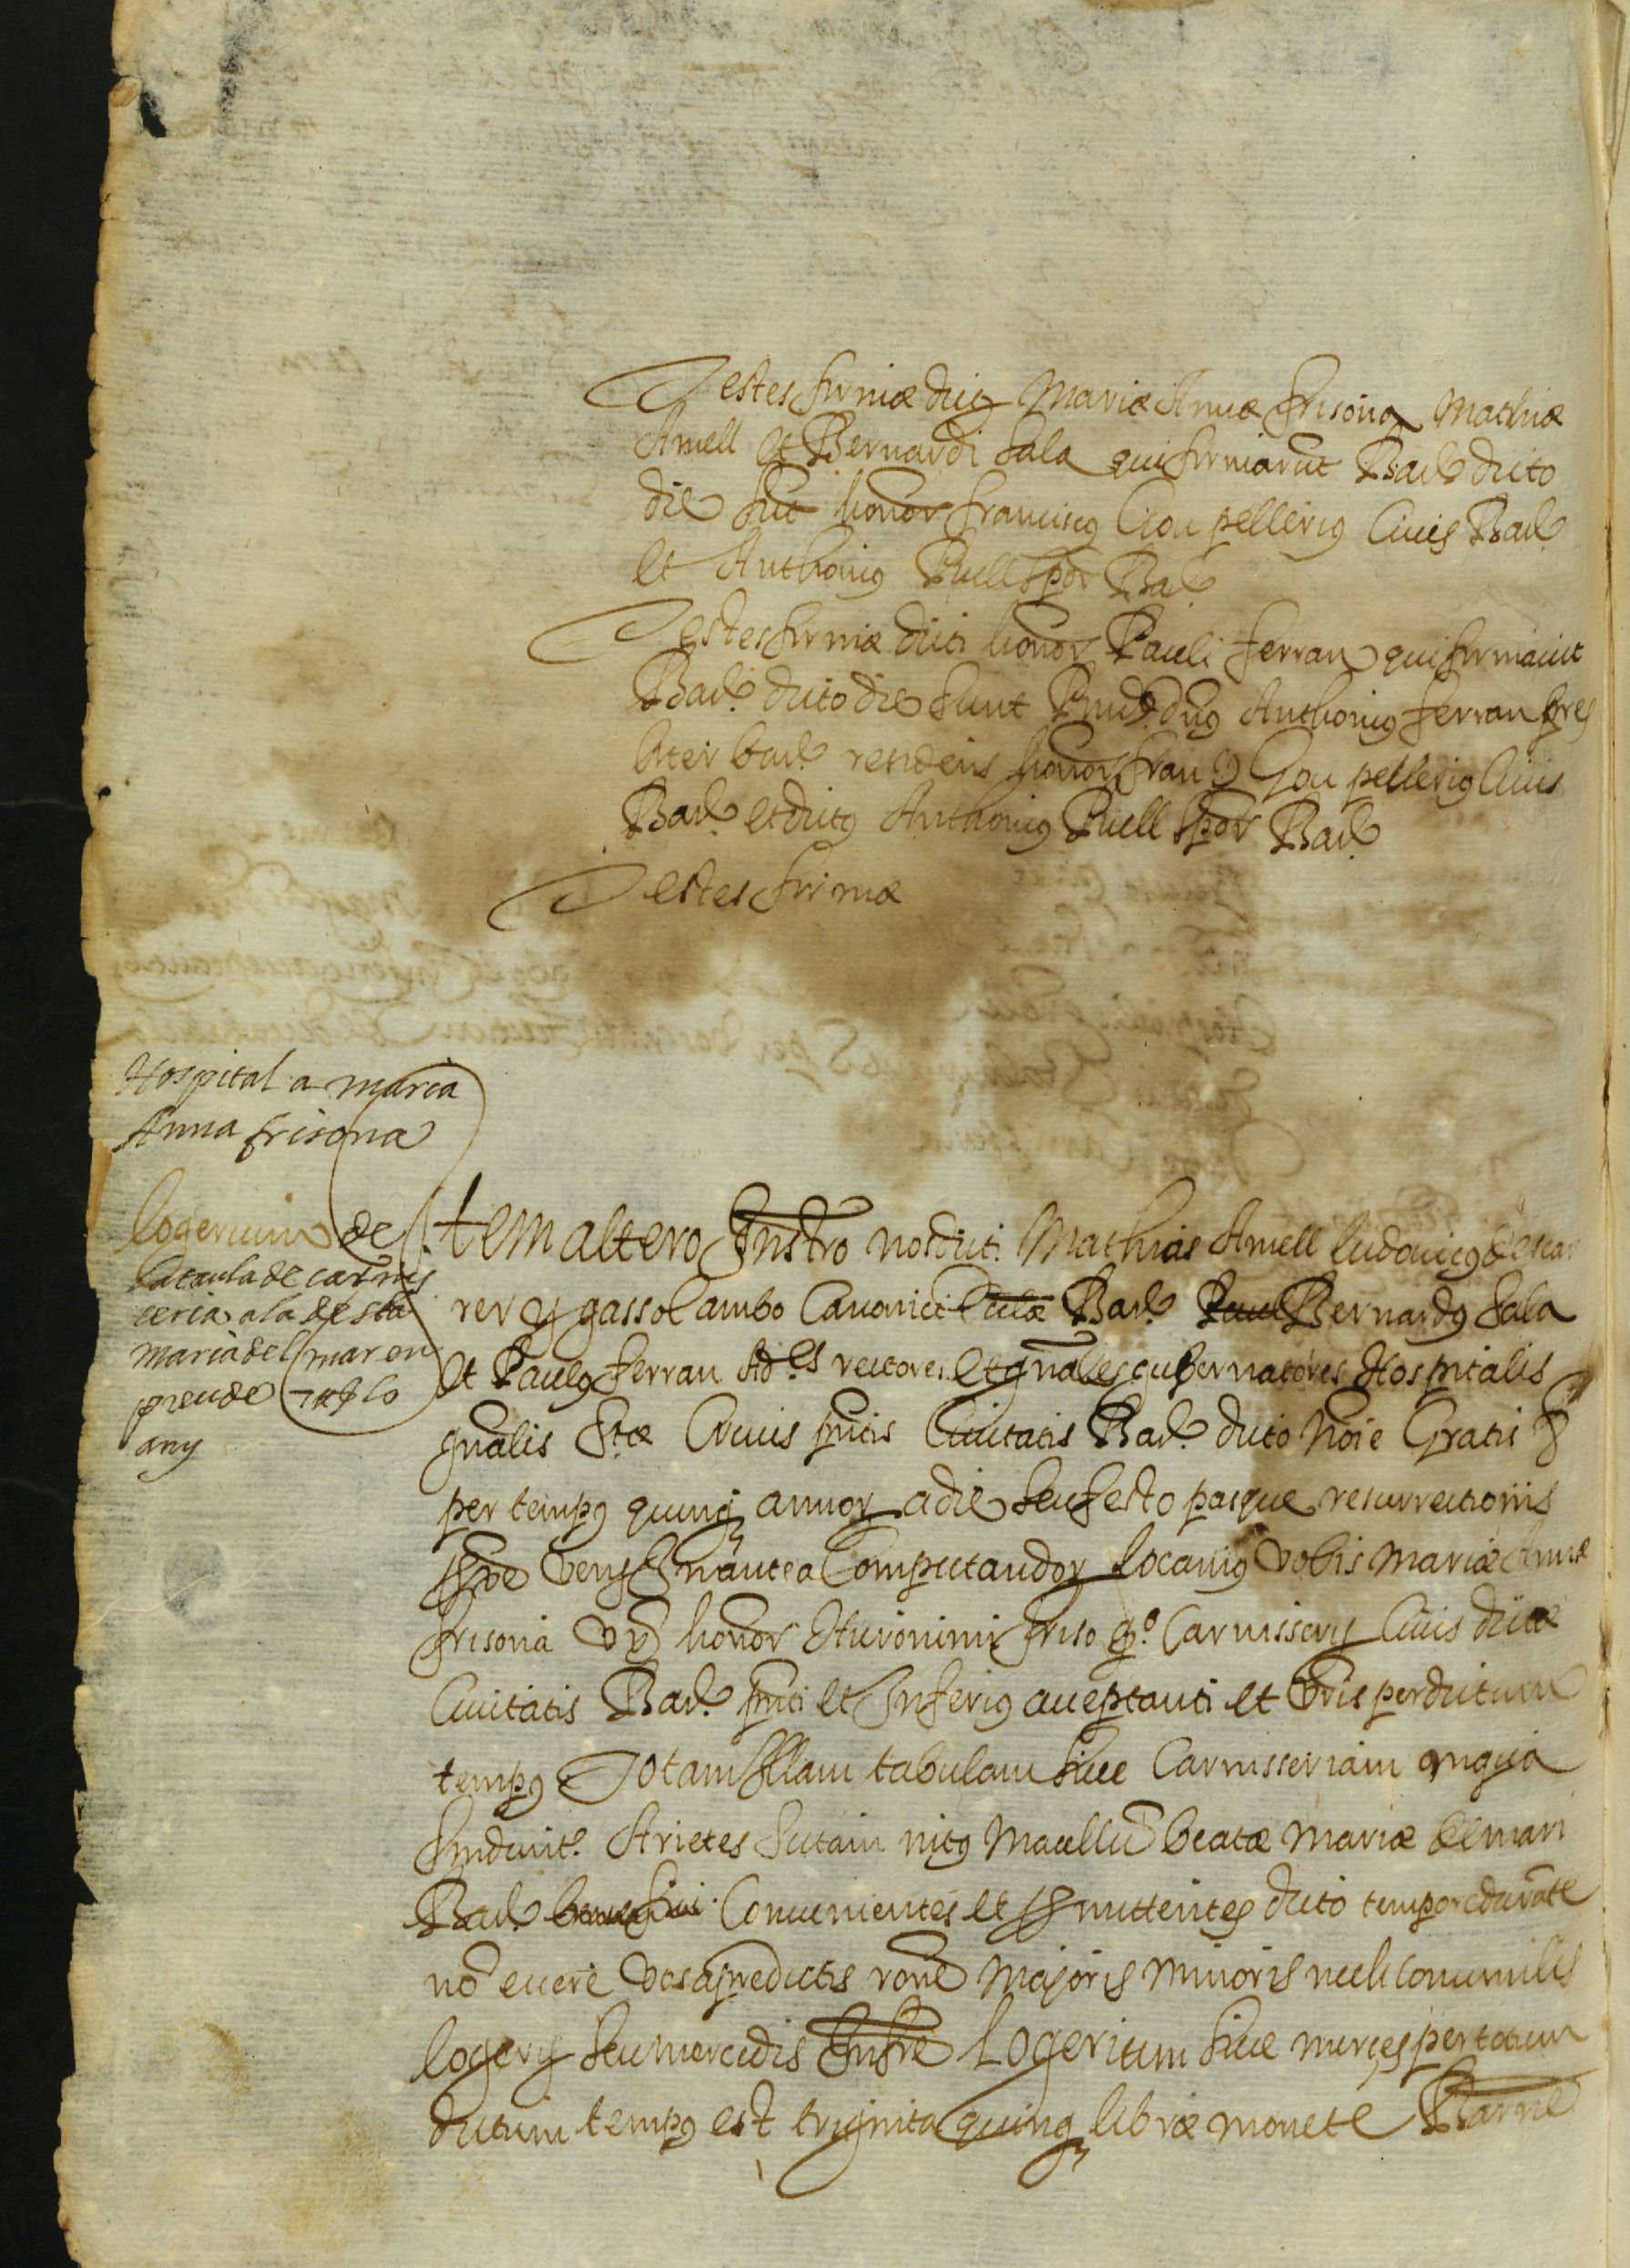 Testes firmæ dictę Mariæ Annæ frisona Mathiæ
Amell et Bernardi Sala qui firmarũt Barñ dicto
die sũt honor franciscꝰ Giou pellerius Civis Barñ
et Anthonius Ruell scptor Barñ
Testes firmæ dicti honor Pauli ferran qui firmavit
Barñ dicto die sunt Rñdꝰ dñs Anthonius ferran pres
biter Barñ residens honor franꝰ Giou pellerius Civis
Barñ et dictus Anthonius Ruell scptor Barñ
Testes firmæ
Hospital a maria
Anna frisona
logerium de
la taula de carnis
ceria a la de sta
maria del mar on
prende 7 ₶ lo
any
Item altero Instro nos dicti Mathias Amell ludovicus Descar
rer y gassol ambo Canonici Sedis Barñ Paul Bernardus Sala
et Paulus ferran Ad.es rectores et gñales gubernatores Hospitalis
gñalis Stæ Crucis pñtis Civitatis Barñ dicto noĩe Gratis &
per tempꝰ quinqȝ annoꝝ a die seu festo pasque resurrectionis
pxẽ venꝰ in antea Computandoꝝ locamus vobis Mariæ Annæ
frisona vx honor Hieronimi friso q.º Carnissery Civis dictæ
Civitatis Barñ pñti et Inferius acceptanti et vris per dictum
tempꝰ Totam Illam tabulam sive Carnisseriam
Sitam intus Macellũ beatæ Mariæ de mari
Barñ Convenientes et pmittentes dicto tempore durãte
nõ eiicere vos a predictis rõne Majoris Minoris vel consimilis
logery seu mercedis Logerium sive merces per totum
dictum tempꝰ est triginta quinqȝ libræ monete Barñe